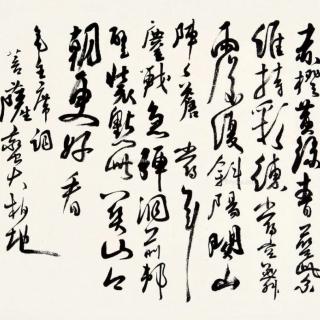 赤橙黄綠青藍紫
誰持彩練當空舞
雨後復斜陽関山
陣々蒼當年
鏖戰急彈洞前邨
壁裝點此关山今
朝更好看
毛主席詞
菩薩蠻大柏地